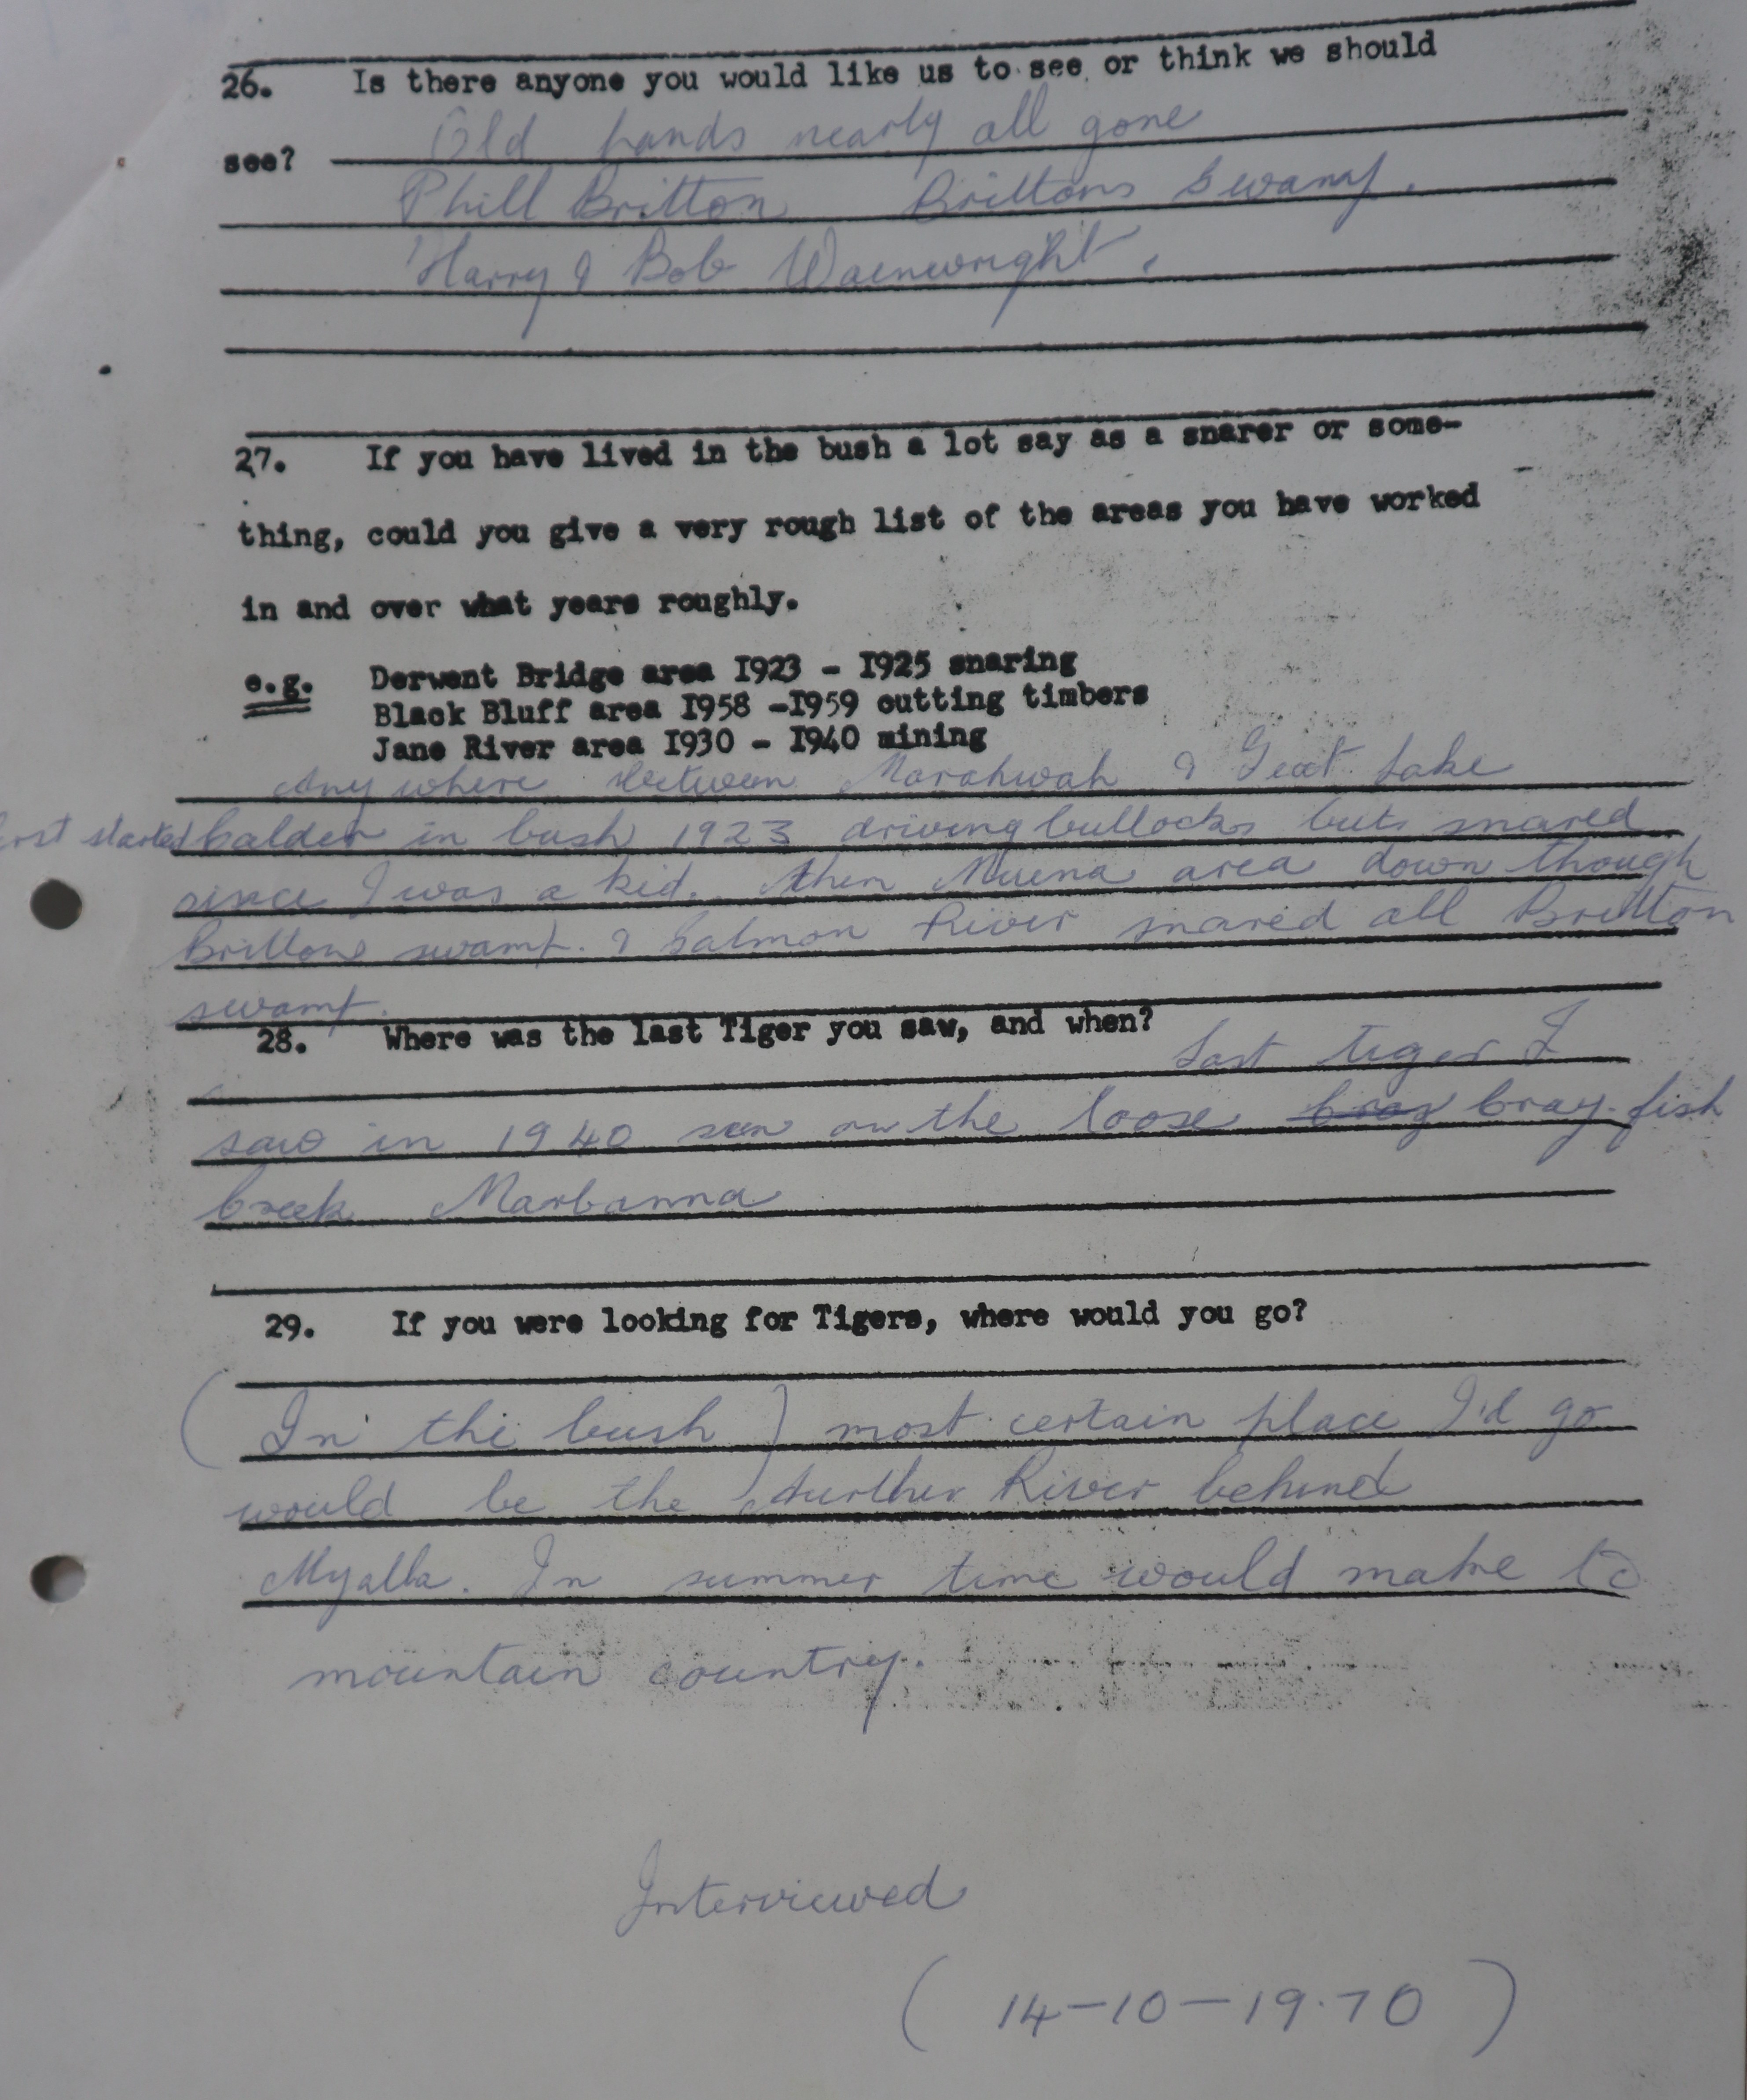 26. Is there anyone you would like us to see or think we should
Old hands nearly all gone
see?
Phill Britton Brittons Swamp.
Harry & Bob Wainwright.
27. If you have lived in the bush a lot say as a snarer or some-
thing, could you give a very rough list of the areas you have worked
in and over what years roughly.
e.g. Derwent Bridge area I923 - I925 snaring
Black Bluff area I958 -I959 cutting timbers
Jane River area I930 - I940 mining
Any where between Marahwah & Great Lake
started in bush 1923 driving bullocks but snared
since I was a kid. then Miena area down though
Brittons swamp. & Salmon River snared all Britton
swamp.
28. Where was the last Tiger you saw, and when?
Last tiger I
saw in 1940 seen on the loose Cray fish
Creek
29. If you were looking for Tigers, where would you go?
(In the bush) most certain place I'd go
would be the Arthur River behind
Myalla. In summer time would make to
mountain country.
Interviewed
(14-10-19.70)